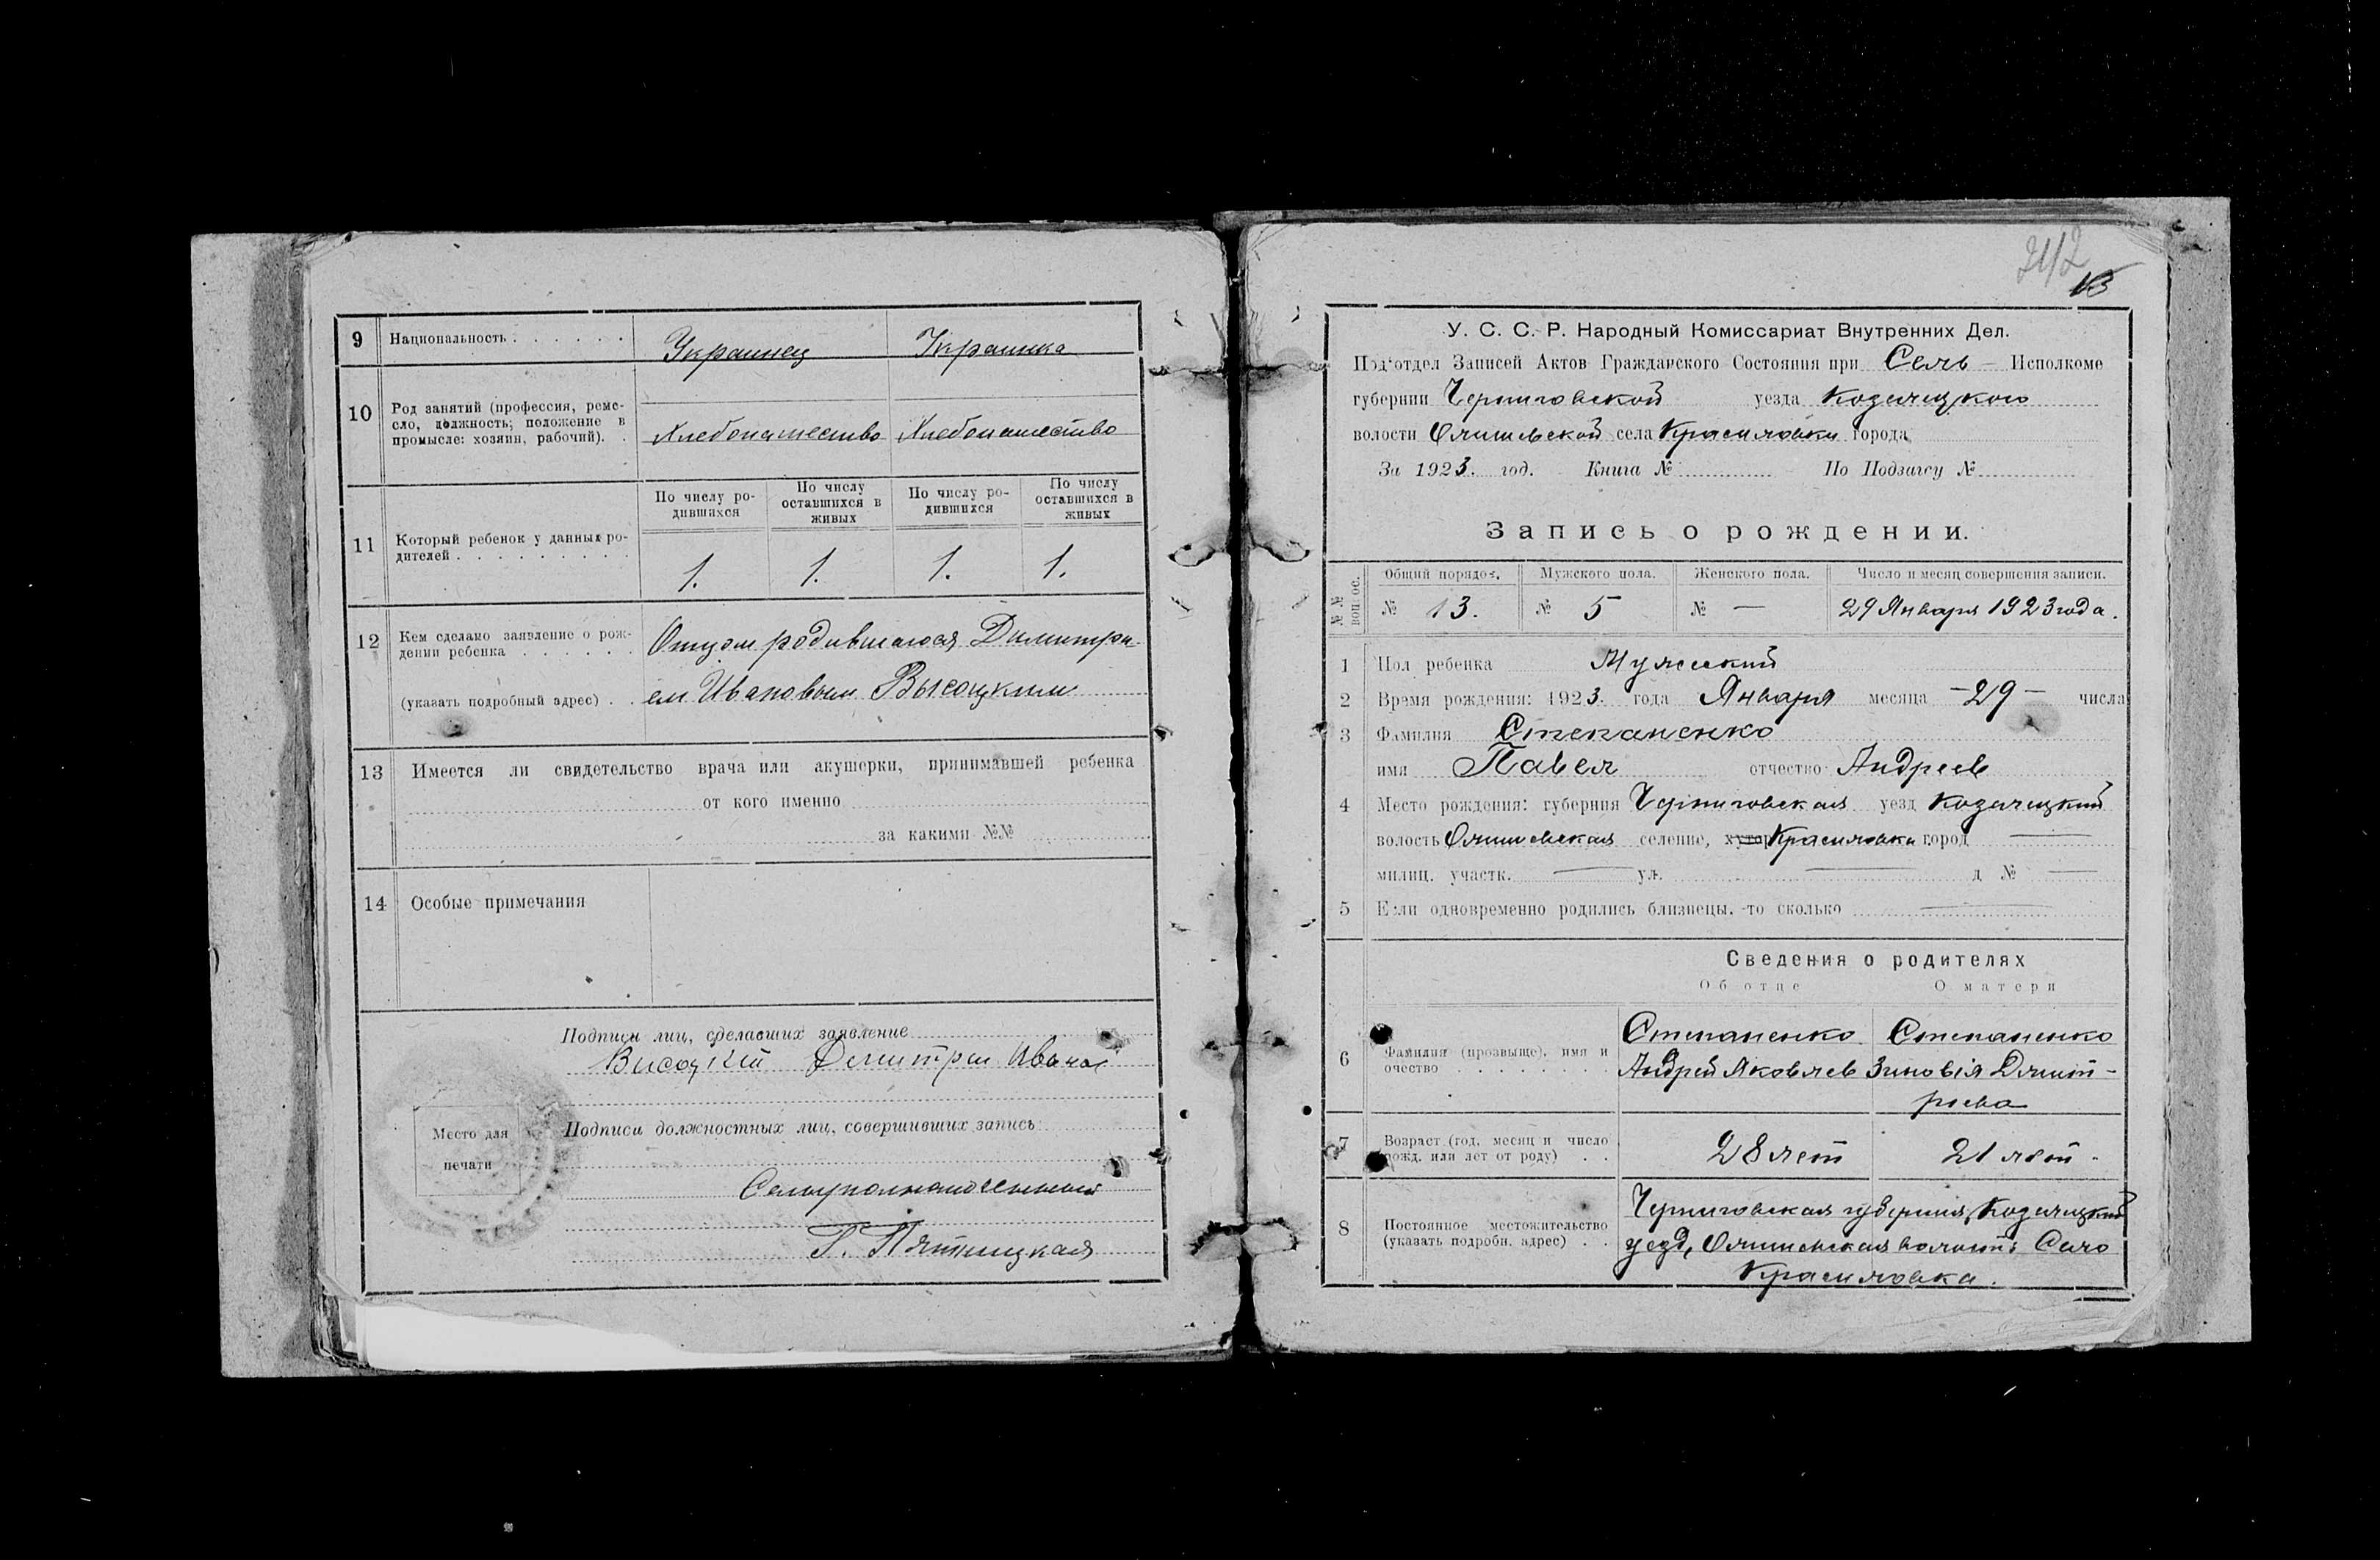 9 Национальность . . . . . . Украинец Украинка
10 Род занятий (профессия, реме-
сло, должность; положение в
промысле: хозяин, рабочий). . Хлебопашество Хлебопашество
11 Который ребенок у данных ро-
дителей . . . . . . . . .
По числу ро-
дившихся
По числу
оставшихся в
живых
По числу ро-
дившихся
По числу
оставшихся в
живых
1. 1. 1. 1.
12 Кем сделано заявление о рож-
дении ребенка . . . . . .
(указать подробный адрес) . .
Отцом родившагося Димитри-
ем Ивановым Высоцким
13 Имеется ли свидетельство врача или акушерки, принимавшей ребенка
от кого именно
за какими №№
14 Особые примечания
Подписи лиц, сделавших заявление
Висоцкій Демитрии
Место для
печати
Подписи должностных лиц, совершивших запись
Г. Пятницкая
21/2
13
У. С. С. Р. Народный Комиссариат Внутренних Дел.
Под'отдел Записей Актов Гражданского Состояния при Сель — Исполкоме
губернии Черниговской уезда Козелецкого
волости Олишевской села Красиловки города
За 1923. год. Книга № По Подзагсу №
Запись о рождении.
№ №
вопрос.
Общий порядок. Мужского пола. Женского пола. Число и месяц совершения записи.
№ 13. № 5 № — 29 Января 1923 года.
1 Пол ребенка Мужеский
2 Время рождения: 1923. года Января месяца —29— числа
3 Фамилия Степаненко
имя Павел отчество Андреев
4 Место рождения: губерния Черниговская уезд Козелецкий
волость Олишевская селение, хутор Красиловка город —
милиц. участк. — ул. — д № —
5 Если одновременно родились близнецы. то сколько —
Сведения о родителях
Об отце О матери
6 Фамилия (прозвище), имя и
очество . . . . . . . . .
Степаненко
Андрей Яковлев
Степаненко
Зиновія Дмит-
риева
7 Возраст (год, месяц и число
рожд. или лет от роду) . .
28 лет 21 лет.
8 Постоянное местожительство
(указать подробн. адрес) . .
Черниговская губерния, Козелецкий
уезд, Олишевская волость Село
Красиловка.